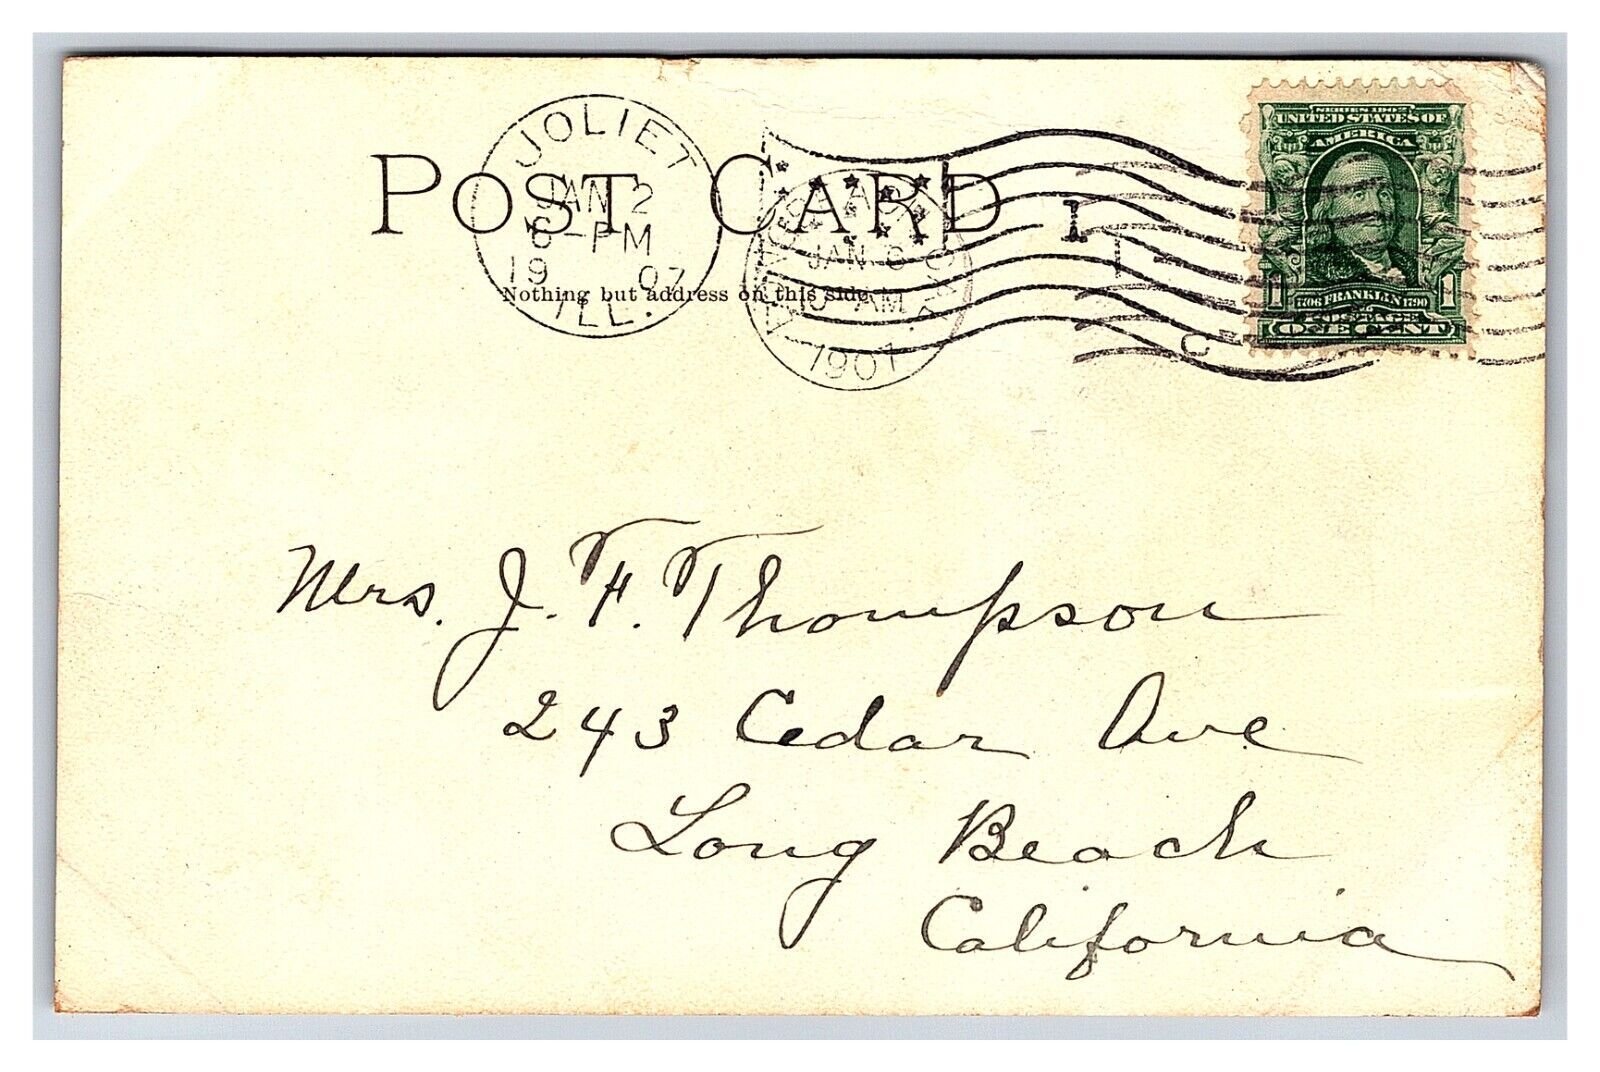 JOLIET
JAN 2
6-PM
19 07
ILL.
POST CARD
Nothing but address on this side.
JAN 6
AM
1907
1
C
SERIES 1902
UNITED STATES OF
AMERICA
1 1
1706 FRANKLIN 1790
POSTAGE
ONE CENT
Mrs. J. F. Thompson
243 Cedar Ave
Long Beach
California